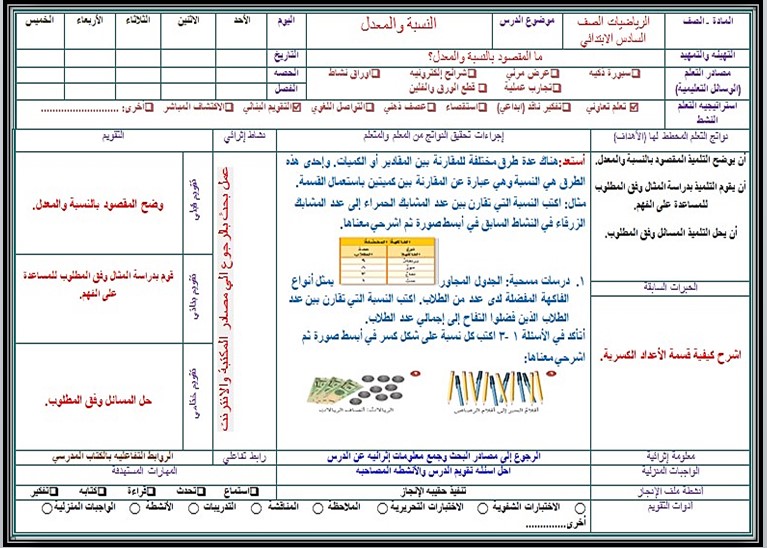 المادة - الصف
الرياضيات الصف السادس الابتدائي
موضوع الدرس
النسبة والمعدل
اليوم
الأحد
الاثنين
الثلاثاء
الأربعاء
الخميس
التهيئة والتمهيد
ما المقصود بالنسبة والمعدل؟
التاريخ
مصادر التعلم (الوسائل التعليمية)
سبورة ذكيه
عرض مرئي
شرائح إلكترونيه
اوراق نشاط
الحصه
تجارب عملية
قطع الورق والفلين
الفصل
استراتيجيه التعلم النشط
تعلم تعاوني
تفكير ناقد (ابداعي)
استقصاء
عصف ذهني
التواصل اللغوي
التقويم البنائي
الاكتشاف المباشر
أخرى: ..........................
نواتج التعلم المخطط لها (الأهداف)
إجراءات تحقيق النواتج من المعلم والمتعلم
نشاط إثرائي
التقويم
أن يوضح التلميذ المقصود بالنسبة والمعدل.
أن يقوم التلميذ بدراسة المثال وفق المطلوب للمساعدة على الفهم.
أن يحل التلميذ المسائل وفق المطلوب.
الخبرات السابقة
اشرح كيفية قسمة الأعداد الكسرية.
أستعد:هناك عدة طرق مختلفة للمقارنة بين المقادير أو الكميات. وإحدى هذه
الطرق هي النسبة وهي عبارة عن المقارنة بين كميتين باستعمال القسمة.
مثال: اكتب النسبة التي تقارن بين عدد المشابك الحمراء إلى عدد المشابك
الزرقاء في النشاط السابق في أبسط صورة ثم اشرحي معناها.
الفاكهة المفضلة
نوع الفاكهة
عدد الطلاب
١. درسات مسحية: الجدول المجاور يمثل أنواع
الفاكهة المفضلة لدى عدد من الطلاب. اكتب النسبة التي تقارن بين عدد
الطلاب الذين فضلوا التفاح إلى إجمالي عدد الطلاب.
أتأكد في الأسئلة ١-٣ اكتب كل نسبة على شكل كسر في أبسط صورة ثم
اشرحي معناها:
أقلام الحبر إلى أقلام الرصاص
الريالات: أنصاف الريالات
عمل بحث بالرجوع الى مصادر المكتبة والانترنت
تقويم قبلي
وضح المقصود بالنسبة والمعدل.
تقويم بنائي
قوم بدراسة المثال وفق المطلوب للمساعدة على الفهم.
تقويم ختامي
حل المسائل وفق المطلوب.
معلومة إثرائية
الرجوع إلى مصادر البحث وجمع معلومات إثرائيه عن الدرس
رابط تفاعلي
الروابط التفاعليه بالكتاب المدرسي
الواجبات المنزلية
احل اسئله تقويم الدرس والأنشطه المصاحبه
المهارات المستهدفة
أنشطة ملف الإنجاز
تنفيذ حقيبه الإنجاز
استماع
تحدث
قراءة
كتابه
تفكير
أدوات التقويم
الاختبارات الشفوية
الاختبارات التحريرية
الملاحظة
المناقشة
التدريبات
الأنشطة
الواجبات المنزلية
أخرى..............